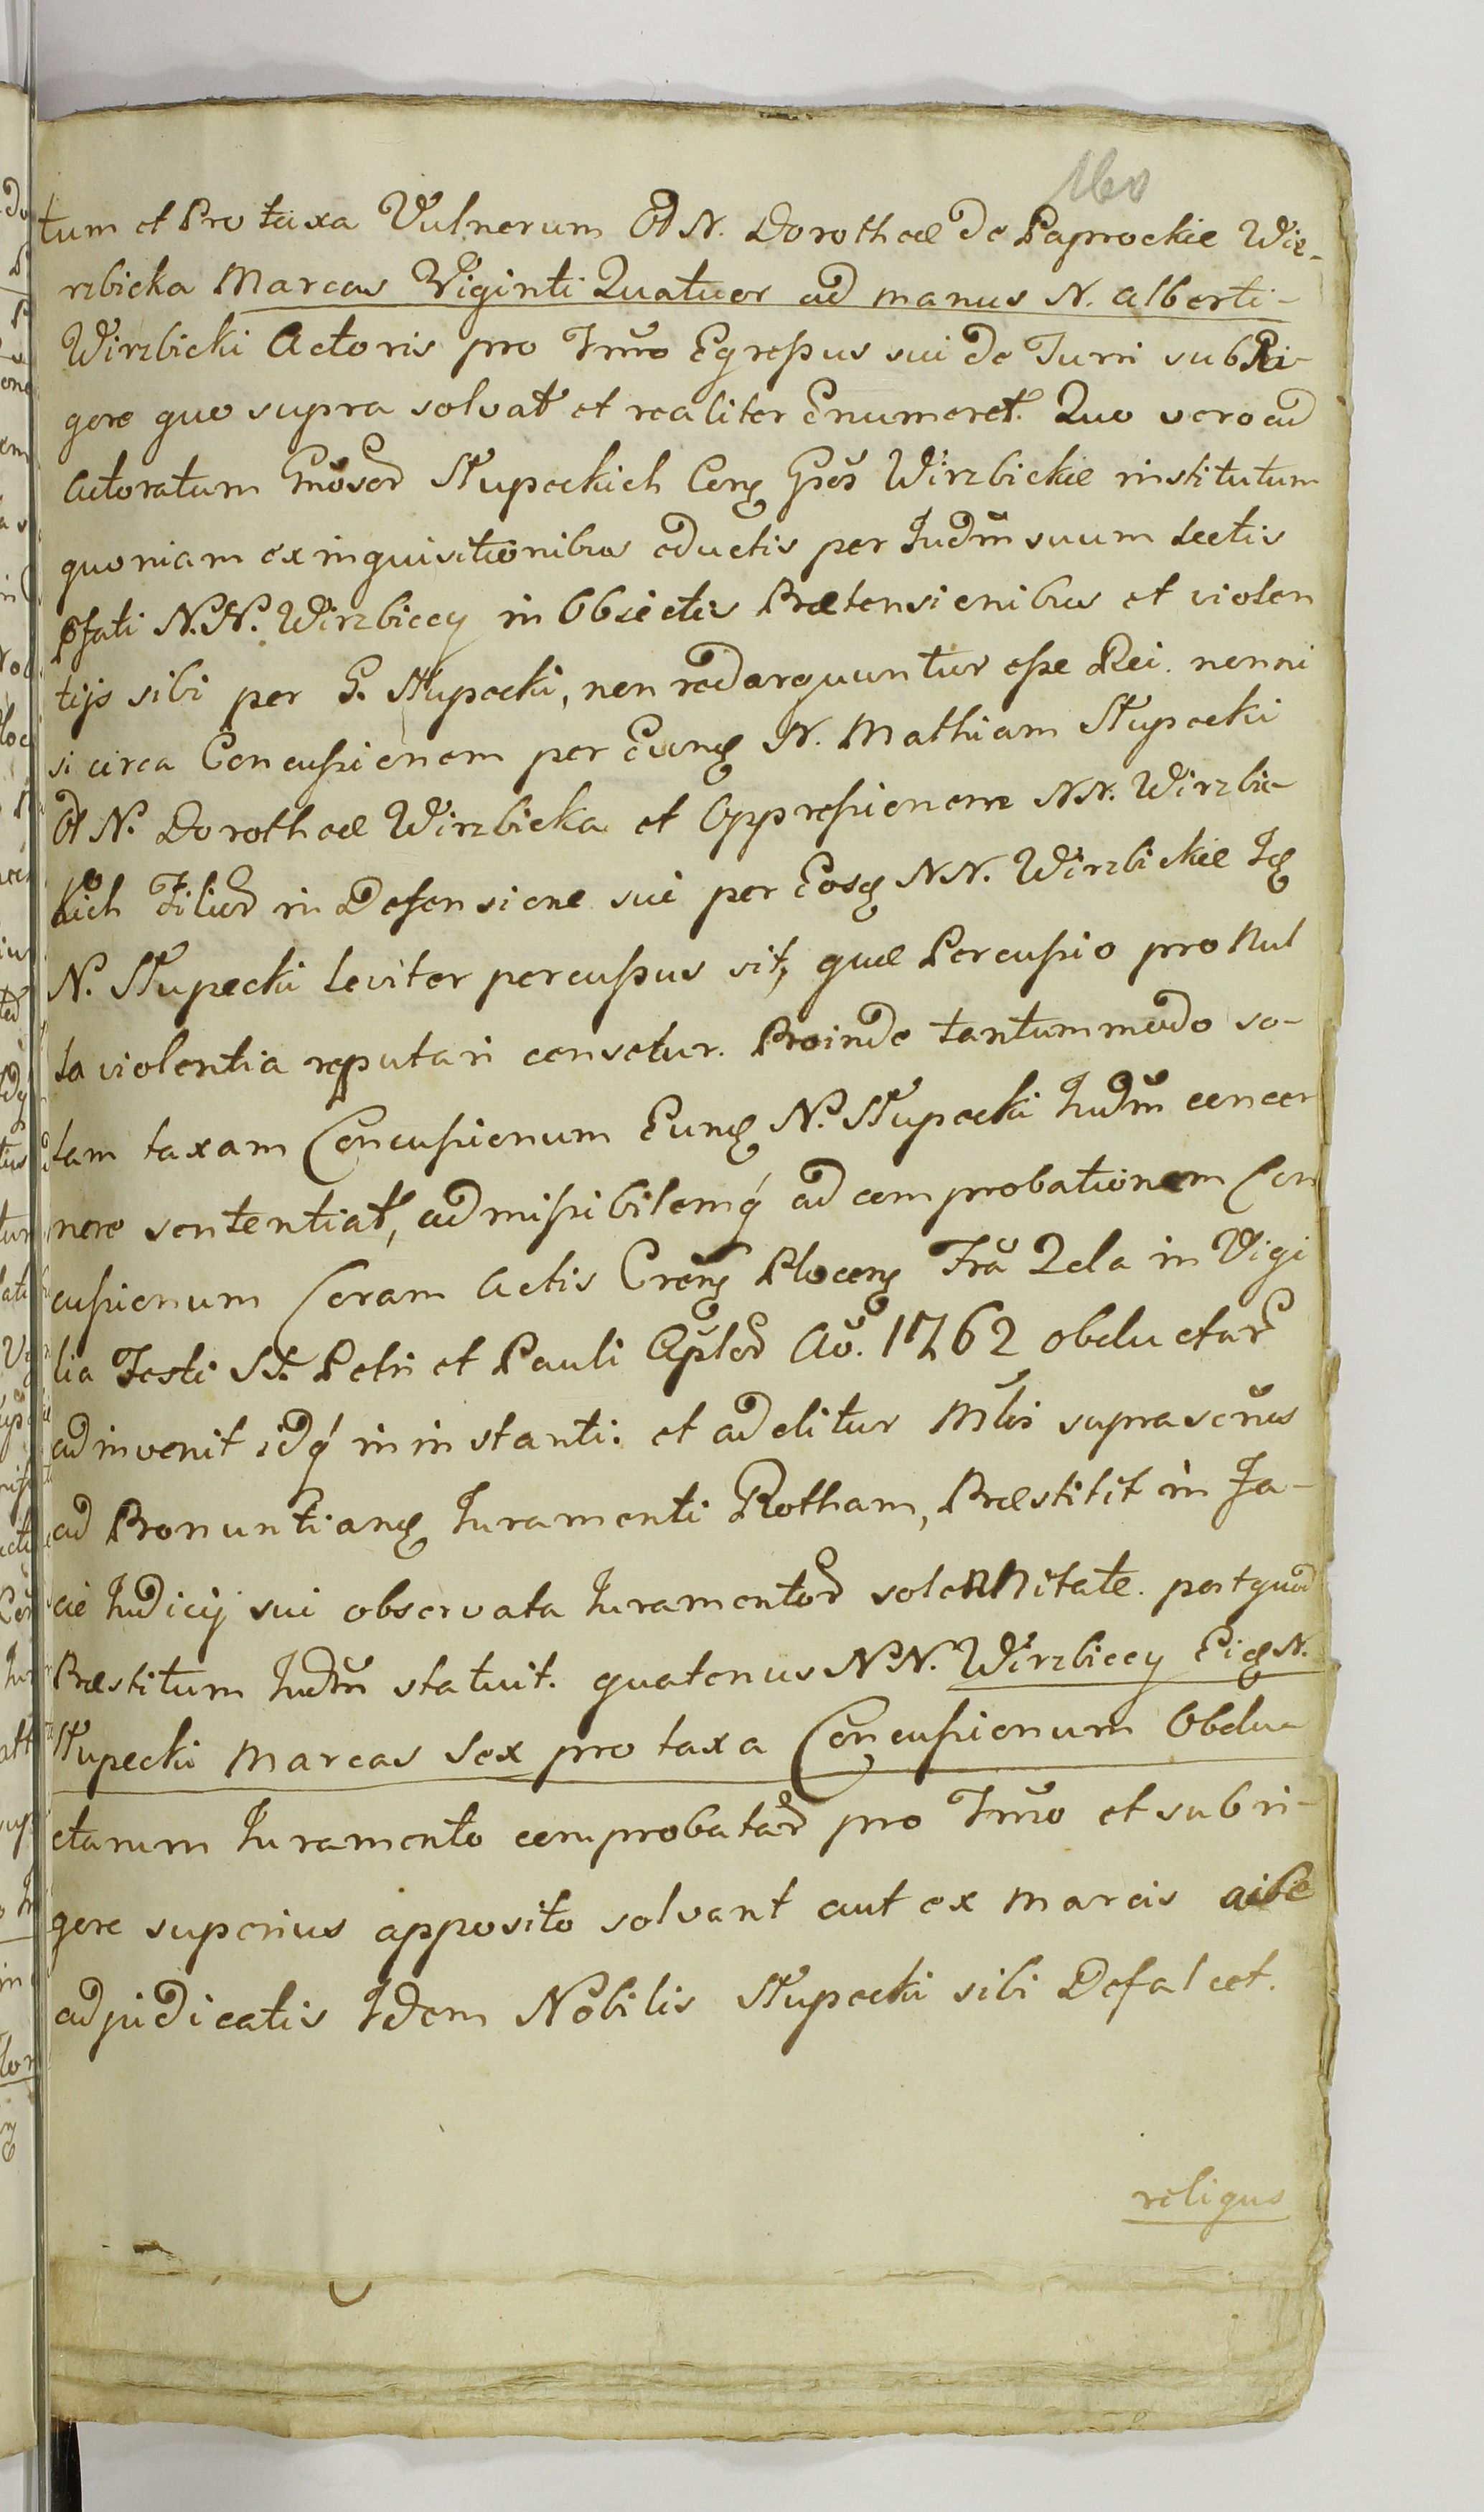 160
tum et Pro taxa Vulnerum Gd N. Dorotheæ de Paprockie Wie-
rzbicka Marcas Viginti Quatuor ad manus N. Alberti-
Wirzbicki Actoris pro Trmo Egressus sui de Turri sub Ri-
gore quo supra solvat et realiter Enumeret. Quo vero ad
Actoratum Słupeckich Wirzbickie institutum
quoniam ex inquisitionibus eductis per Judm suum lectis
pfati N.N. Wirzbiccy in Obiectis Prætensionibus et violen
tijs sibi per G. Słupecki, non redarguuntur esse Rei. nonni
si circa Concussionem per Eunq N. Mathiam Słupecki
Gd N. Dorotheæ Wirzbicka et Oppressionem NN. Wirzbic-
kich Filior in Defensione sui per Eosq NN. Wirzbickie Iq
N. Słupecki leviter percussus sit, quæ Percussio pro Nul
la violentia reputari censetur. Proinde tantummodo so-
lam taxam Concussionum Eunq N. Słupecki Judm concer
nere sententiat, admissibilemq ad comprobationem Con
cussionum Coram Actis Crens Plocens Fra 2da in Vigi
lia Festi SS. Petri et Pauli Aplor Ao. 1762 obductar
adinvenit idq in instanti: et additur Mlis suprascrius
ad Pronuntianq Juramenti Rotham, Præstitit in Fa-
cie Judicij sui observata Juramentor solennitate. post quod
Præstitum Judm statuit. quatenus NN. Wirzbiccy Eiq N.
Słupecki Marcas sex pro taxa Concussionum Obdu-
ctarum Juramento comprobatar pro Trmo et sub ri-
gore superius apposito solvant aut ex Marcis
adjudicatis Idem Nobilis Słupecki sibi Defalcet.
reliqus